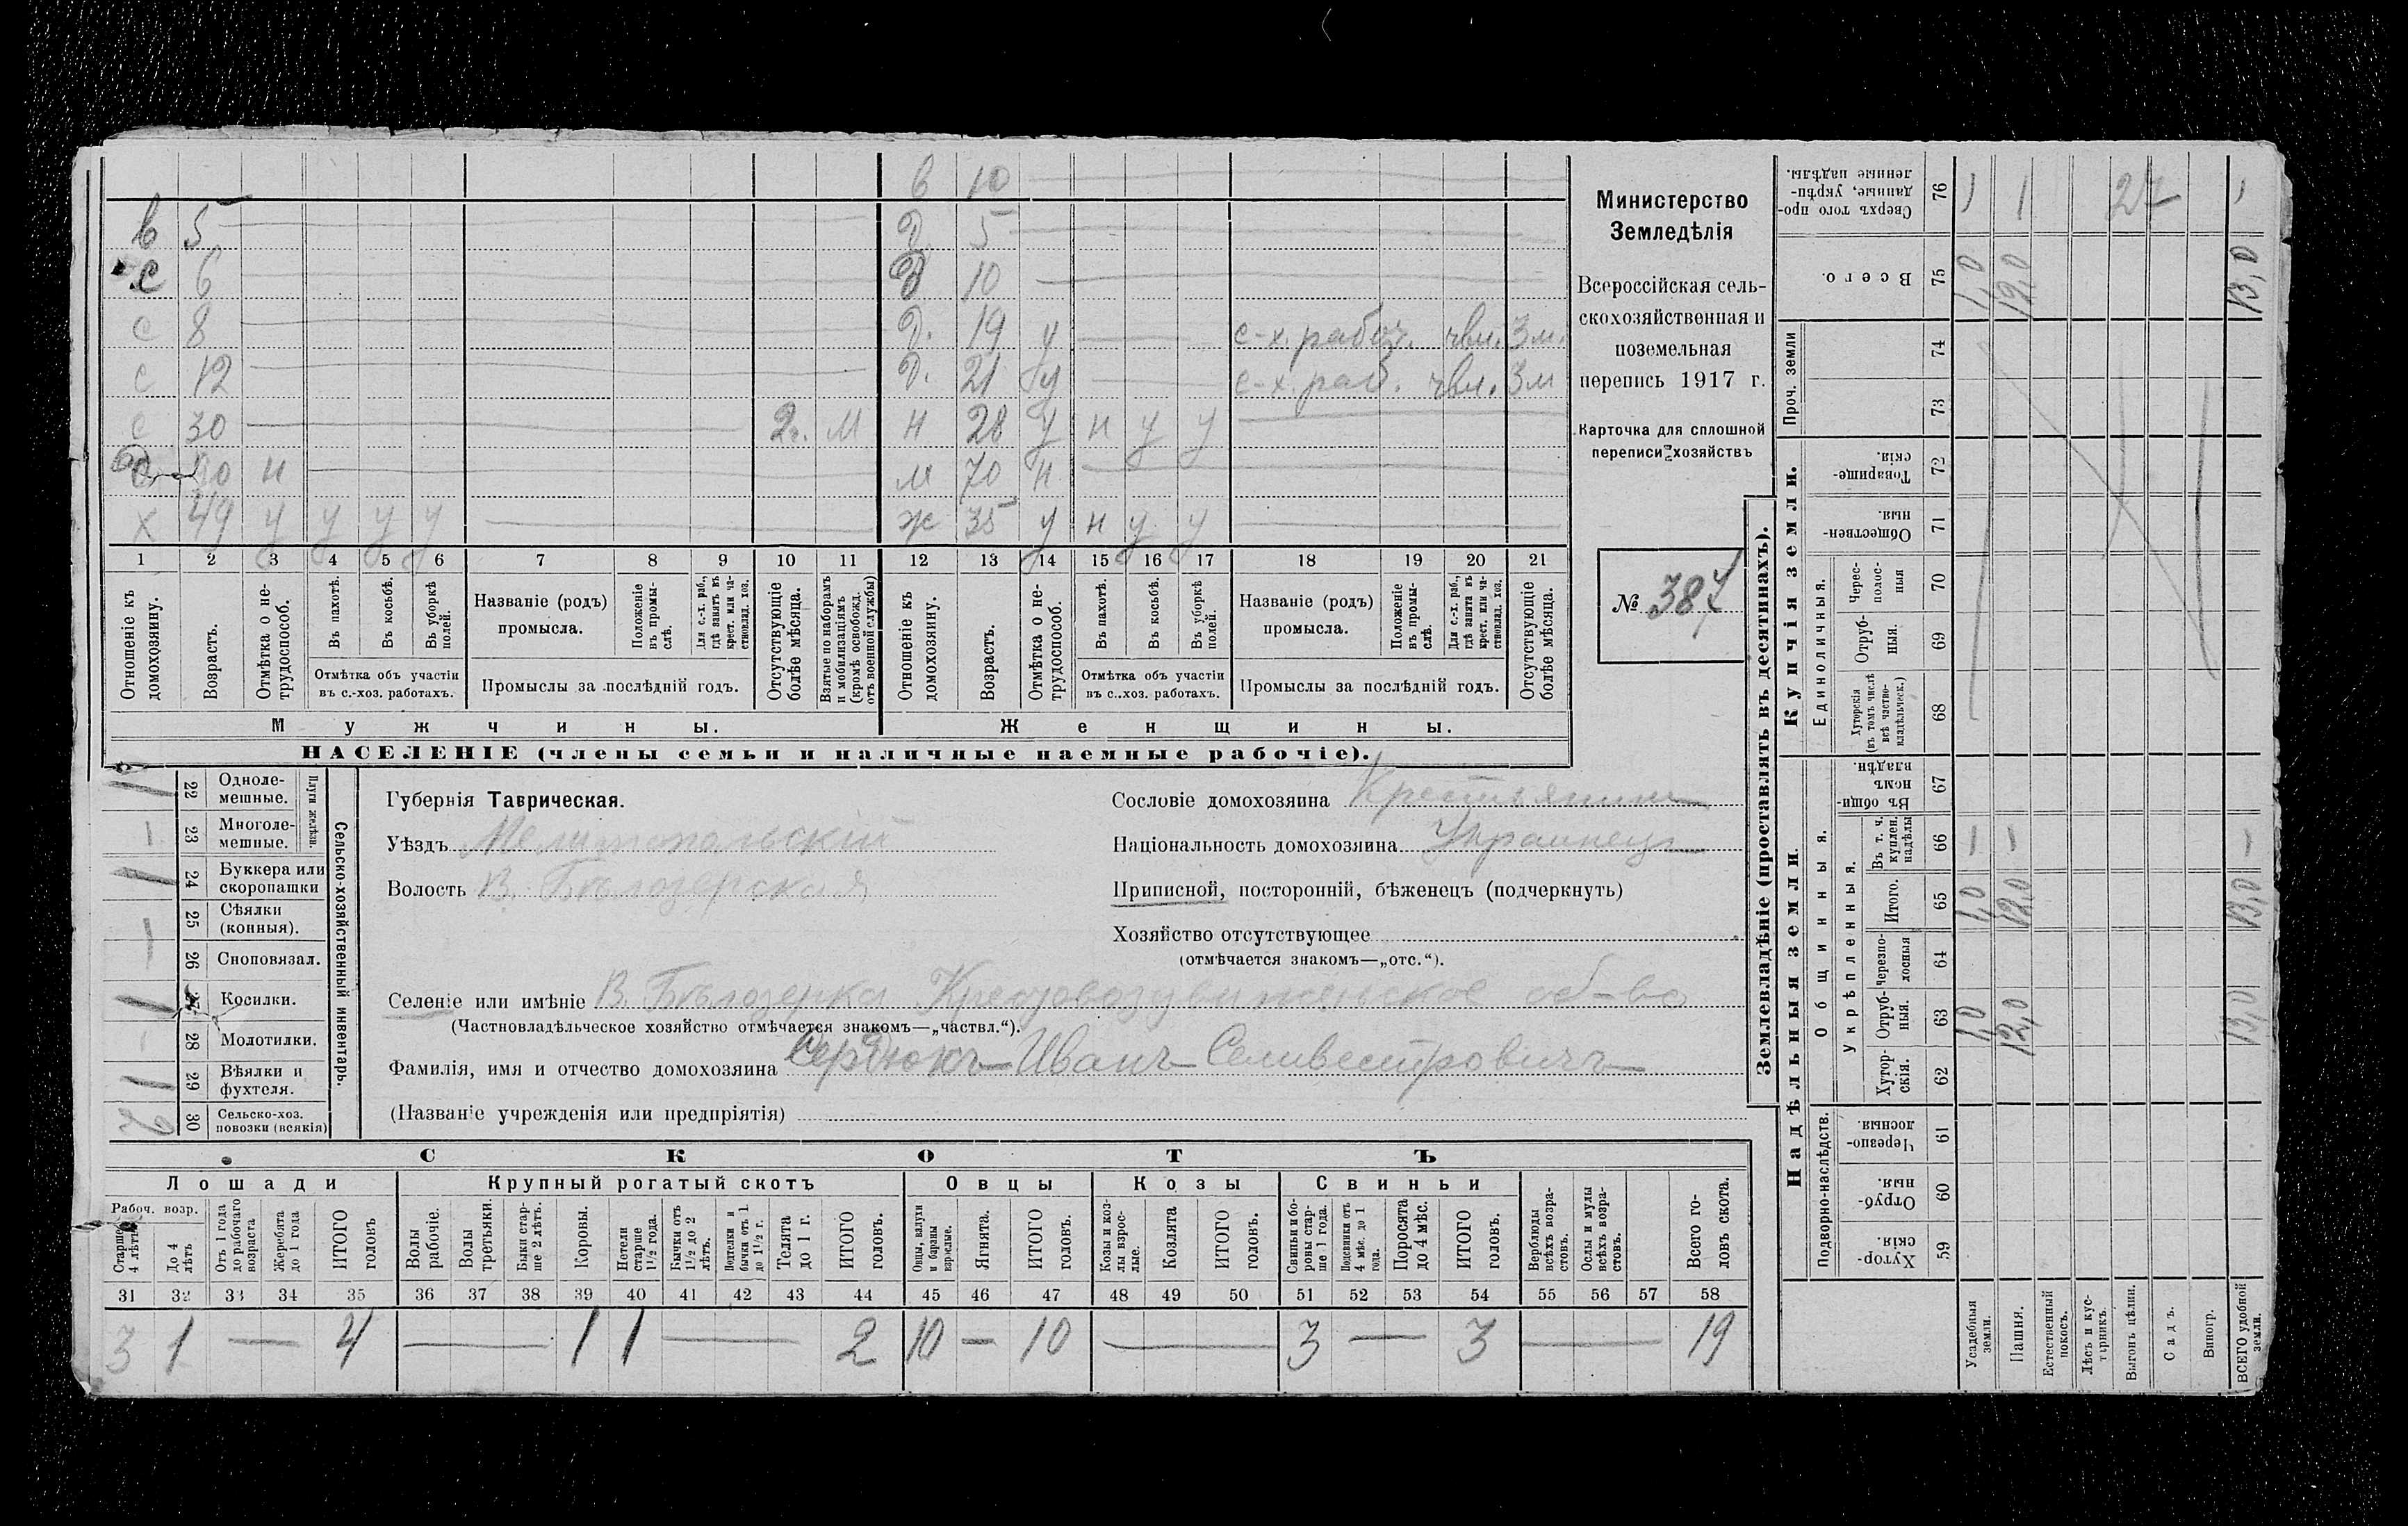 в 10
в 5 Д 5
с 6 Д 10
с 8 Д. 19 у с-х. рабоч. чвл. 3 м.
с 12 Д. 21 у с-х. раб. чвл. 3 м
с 30 2 г. м н 28 у н у у
н м 70 н
х 49 у у у у ж 35 у н у у
1 2 3 4 5 6 7 8 9 10 11 12 13 14 15 16 17 18 19 20 21
Отношеніе къ домохозяину.
Возрастъ.
Отмѣтка о нетрудоспособ.
Въ пахотѣ.
Въ косьбѣ.
Въ уборкѣ полей.
Отмѣтка объ участіи
въ с.-хоз. работахъ.
Названіе (родъ)
промысла.
Положеніе въ промыслѣ.
Для с.-х. раб., гдѣ занятъ въ крест. или частновлад. хоз.
Промыслы за послѣдній годъ.
Отсутствующіе болѣе мѣсяца.
Взятые по наборамъ и мобилизаціямъ (кромѣ освобожд. отъ военной службы)
Отношеніе къ домохозяину.
Возрастъ.
Отмѣтка о нетрудоспособ.
Въ пахотѣ.
Въ косьбѣ.
Въ уборкѣ полей.
Отмѣтка объ участіи
въ с.-хоз. работахъ.
Названіе (родъ)
промысла.
Положеніе въ промыслѣ.
Для с.-х. раб., гдѣ занята въ крест. или частновлад. хоз.
Промыслы за послѣдній годъ.
Отсутствующіе болѣе мѣсяца.
Мужчины. Женщины.
НАСЕЛЕНІЕ (члены семьи и наличные наемные рабочіе).
Министерство
Земледѣлія
Всероссійская сель-
скохозяйственная и
поземельная
перепись 1917 г.
Карточка для сплошной
переписи хозяйствъ
№ 387
22 Одноле-
мешные.
23 Многоле-
мешные.
Плуги желѣзн.
24 Буккера или
скоропашки
25 Сѣялки
(конныя).
26 Сноповязал.
27 Косилки.
28 Молотилки.
29 Вѣялки и
фухтеля.
30 Сельско-хоз.
повозки (всякія)
Сельско-хозяйственный инвентарь.
Губернія Таврическая.
Уѣздъ Мелитопольскій
Волость В. Бѣлозерская
Сословіе домохозяина Крестьянинъ
Національность домохозяина Украинецъ
Приписной, посторонній, бѣженецъ (подчеркнуть)
Хозяйство отсутствующее
(отмѣчается знакомъ—„отс.“).
Селеніе или имѣніе В. Бѣлозерка Крестовоздвиженское об-во
(Частновладѣльческое хозяйство отмѣчается знакомъ—„частвл.“).
Фамилія, имя и отчество домохозяина Сердюкъ Иванъ Селивестровичъ
(Названіе учрежденія или предпріятія)
СКОТЪ
Лошади Крупный рогатый скотъ Овцы Козы Свиньи
Рабоч. возр.
Старше 4 лѣтъ
До 4 лѣтъ
Отъ 1 года до рабочаго возраста
Жеребята до 1 года
ИТОГО головъ
Волы рабочіе.
Волы третьяки.
Быки старше 2 лѣтъ.
Коровы.
Нетели старше 1½ года.
Бычки отъ 1½ до 2 лѣтъ.
Подтелки и бычки отъ 1 до 1½ г.
Телята до 1 г.
ИТОГО головъ.
Овцы, валухи и бараны взрослые.
Ягнята.
ИТОГО головъ.
Козы и козлы взрослые.
Козлята
ИТОГО головъ.
Свиньи и боровы старше 1 года.
Подсвинки отъ 4 мѣс. до 1 года.
Поросята до 4 мѣс.
ИТОГО головъ.
Верблюды всѣхъ возрастовъ.
Ослы и мулы всѣхъ возрастовъ.
Всего головъ скота.
31 32 33 34 35 36 37 38 39 40 41 42 43 44 45 46 47 48 49 50 51 52 53 54 55 56 57 58
3 1 — 4 — 1 1 — 2 10 — 10 — 3 — 3 — 19
Землевладѣніе (проставлять въ десятинахъ).
Купчія земли.
Надѣльныя земли.
Сверхъ того проданные, укрѣпленные надѣлы. 76 27
Всего. 75 1,0 12,0 13,0
Проч. земли 74
73
Товарищескія. 72
Общественныя. 71
Единоличныя.
Чересполосныя 70
Отрубныя. 69
Хуторскія (въ томъ числѣ всѣ частновладѣльческ.) 68
Общинныя.
Въ общинномъ владѣн. 67
Укрѣпленныя.
Въ т. ч. куплен. надѣлы 66
Итого. 65 1,0 12,0 13,0
Черезполосныя 64
Отрубныя. 63 1,0 12,0 13,0
Хуторскія. 62
Подворно-наслѣдств.
Черезполосныя. 61
Отрубныя. 60
Хуторскія. 59
Усадебныя земли.
Пашня.
Естественный покосъ.
Лѣсъ и кустарникъ.
Выгонъ цѣлин.
Садъ.
Виногр.
ВСЕГО удобной земли.